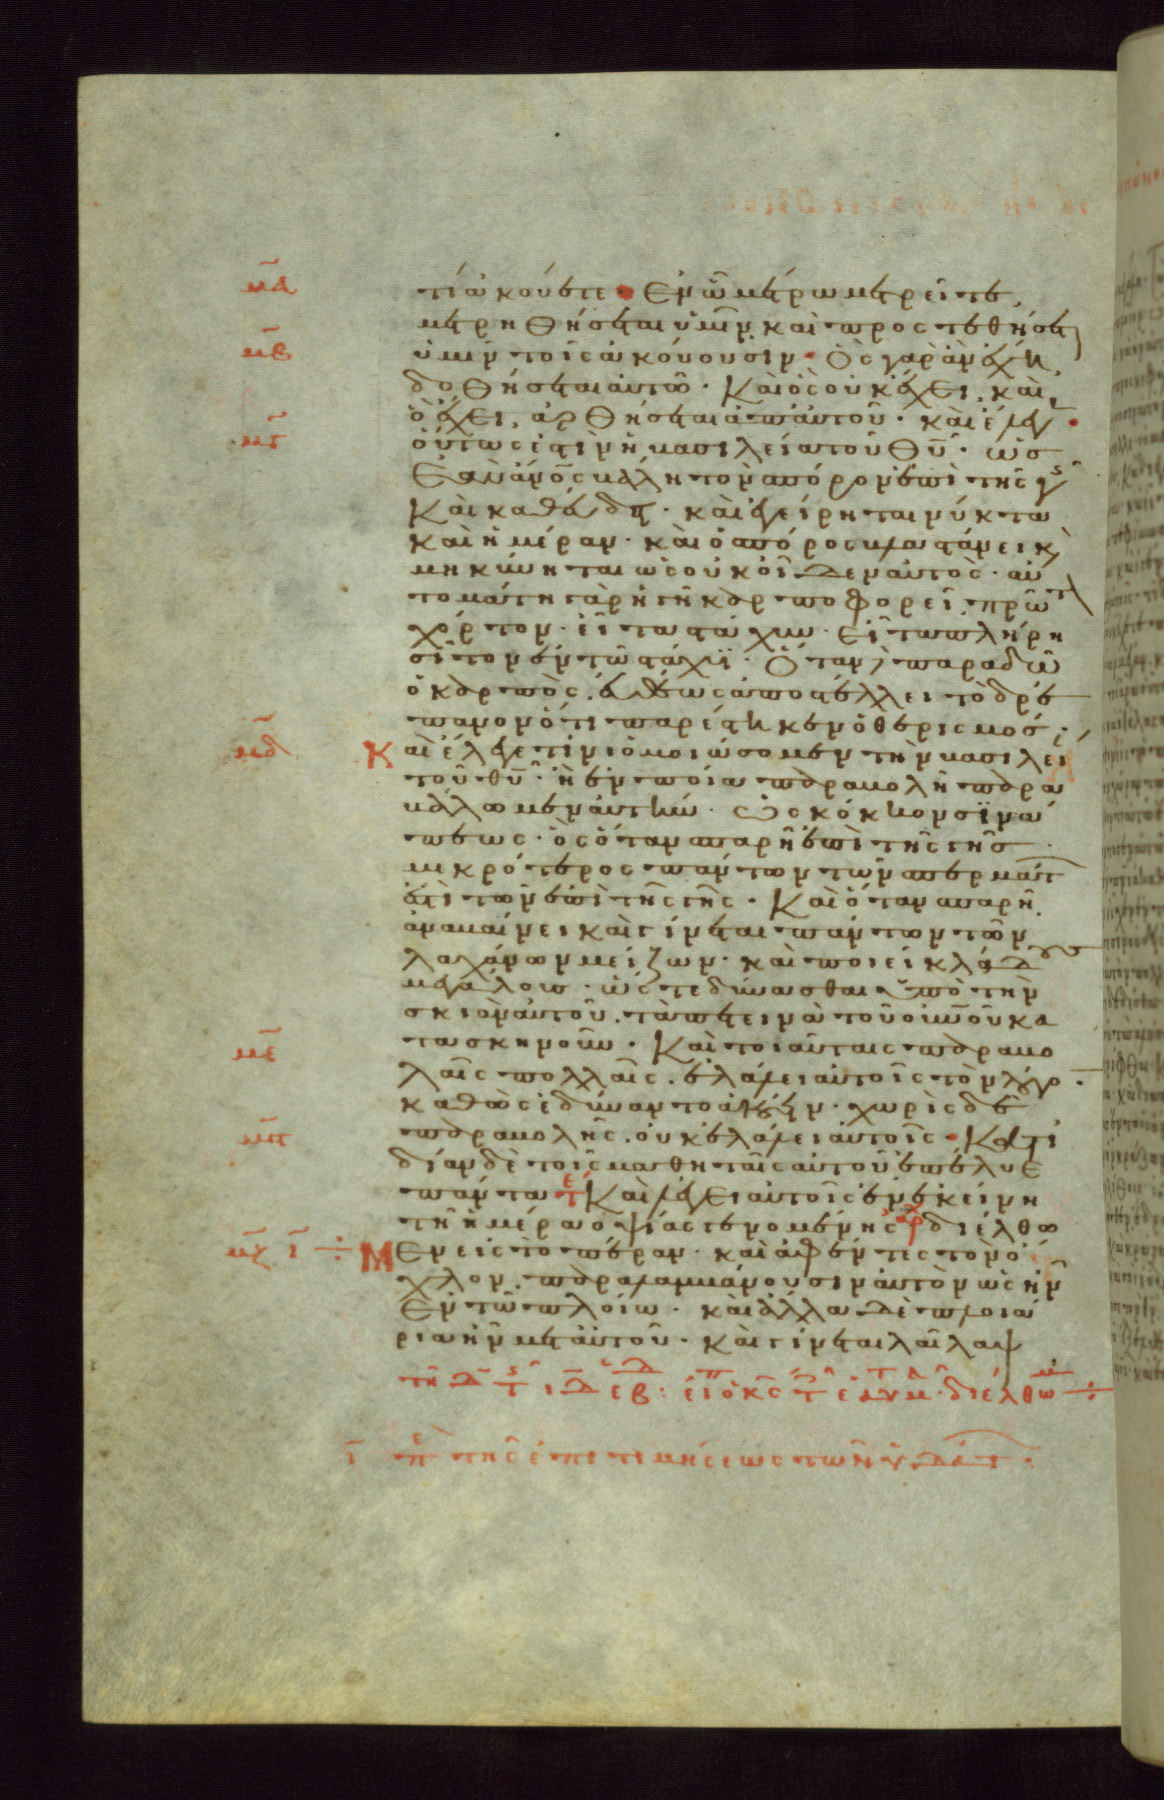 μα
τί ἀκούετε · Ἐν ᾧ μέτρω μετρεῖτε,
μετρηθήσεται ὑμῖν, καὶ προστεθήσεται
μβ
ὑμῖν τοῖς ἀκούουσιν · Ὃς γὰρ ἂν ἔχη,
δοθήσεται αὐτῶ · Καὶ ὃς οὐκ ἔχει, καὶ
ὃ ἔχει, ἀρθήσεται ἀπ' αὐτοῦ · καὶ ἔλεγ ·
μγ
οὕτως ἐστὶν ἡ βασιλεία τοῦ θυ · ὡς
ἐὰν ἄνος βάλη τὸν σπόρον ἐπὶ τῆς γῆς
Καὶ καθεύδη · καὶ ἐγείρηται νύκτα
καὶ ἡμέραν · καὶ ὁ σπόρος βλαστάνει κ
μηκύνηται ὡς οὐκ οἶδεν αὐτός · αὐ
τομάτη γὰρ ἡ γῆ καρποφορεῖ, πρῶτ
χόρτον · εἶτα στάχυν · εἶτα πλήρη
σῖτον ἐν τῶ στάχυϊ · Ὅταν δὲ παραδῶ
ὁ καρπός, εὐθέως ἀποστέλλει τὸ δρέ
πανον ὅτι παρέστηκεν ὁ θερισμός ·
μδ
Καὶ ἔλεγε τίνι ὁμοιώσομεν τὴν βασιλεί
τοῦ θυ · ἢ ἐν ποία παραβολῆ παρα
βάλωμεν αὐτήν · Ὡς κόκκον σινά
πεως · ὃς ὅταν σπαρῆ ἐπὶ τῆς γῆς
μικρότερος πάντων τῶν σπερμάτ
ἐστὶ τῶν ἐπὶ τῆς γῆς · Καὶ ὅταν σπαρῆ,
ἀναβαίνει καὶ γίνεται πάντων τῶν
λαχάνων μείζων · καὶ ποιεῖ κλάδους
μεγάλους · ὥστε δύνασθαι ὑπὸ τὴν
σκιὰν αὐτοῦ, τὰ πετεινὰ τοῦ οὐνοῦ κα
με
τασκηνοῦν · Καὶ τοιαύταις παραβο
λαῖς πολλαῖς, ἐλάλει αὐτοῖς τὸν λόγον ·
καθὼς ἐδύναντο ἀκούειν · χωρὶς δὲ
μϛ
παραβολῆς, οὐκ ἐλάλει αὐτοῖς · Κατ' ἰ
δίαν δὲ τοῖς μαθηταῖς αὐτοῦ ἐπέλυε
πάντα τε Καὶ λέγει αὐτοῖς ἐν ἐκείνη
τῆ ἡμέρα ὀψίας γενομένης ἀρχ διέλθω
μζ ι ÷
Μεν εἰς τὸ πέραν · καὶ ἀφέντες τὸν ὄ
χλον, παραλαμβάνουσιν αὐτὸν ὡς ἦν
ἐν τῶ πλοίω · καὶ ἄλλα δὲ πλοιά
ρια ἦν μετ' αὐτοῦ · καὶ γίνεται λαῖλαψ
διέλθωμ ÷
ι πε τῆς ἐπιτιμήσεως τῶν ὑδάτ ·